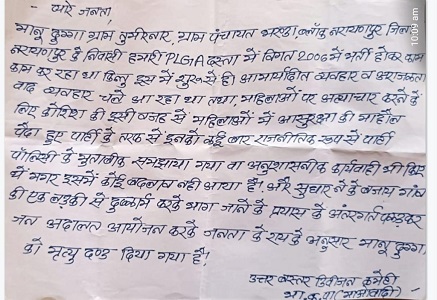 - प्यारे जनता,
भानू दुग्गा ग्राम तुमिरनार, ग्राम पंचायत भरण्डा, ब्लॉक नरायणपुर जिला
नरायणपुर के निवासी हमारी PLGA दस्ता में विगत 2006 में भर्ती होकर काम
काम कर रहा था किन्तु इस में शुरू से ही व्यवहार व अराजकता
वाद व्यवहार चले आ रहा था तथा, महिलाओं पर अत्याचार करने के
लिए कोशिश की इसी वजह से महिलाओं में असुरक्षा की माहौल
पैदा हुए पार्टी के तरफ से इनको कई बार राजनीतिक रूप से पार्टी
पॉलिसी के मुताबिक समझाया गया वा अनुशासनीक कार्यवाही भी किए
है मगर इसमें कोई बदलाव नही आया है! और सुधारने के बजाय गांव
की एक लड़की से दुष्कर्म करके भाग जाने के प्रयास के अंतर्गत पकड़कर
जन अदालत आयोजन करके जनता के राय के अनुसार भानू दुग्गा
को मृत्यु दण्ड दिया गया है!
उत्तर बस्तर डिवीजन कमेटी
भा.क.पा (माओवादी)
10:09 am